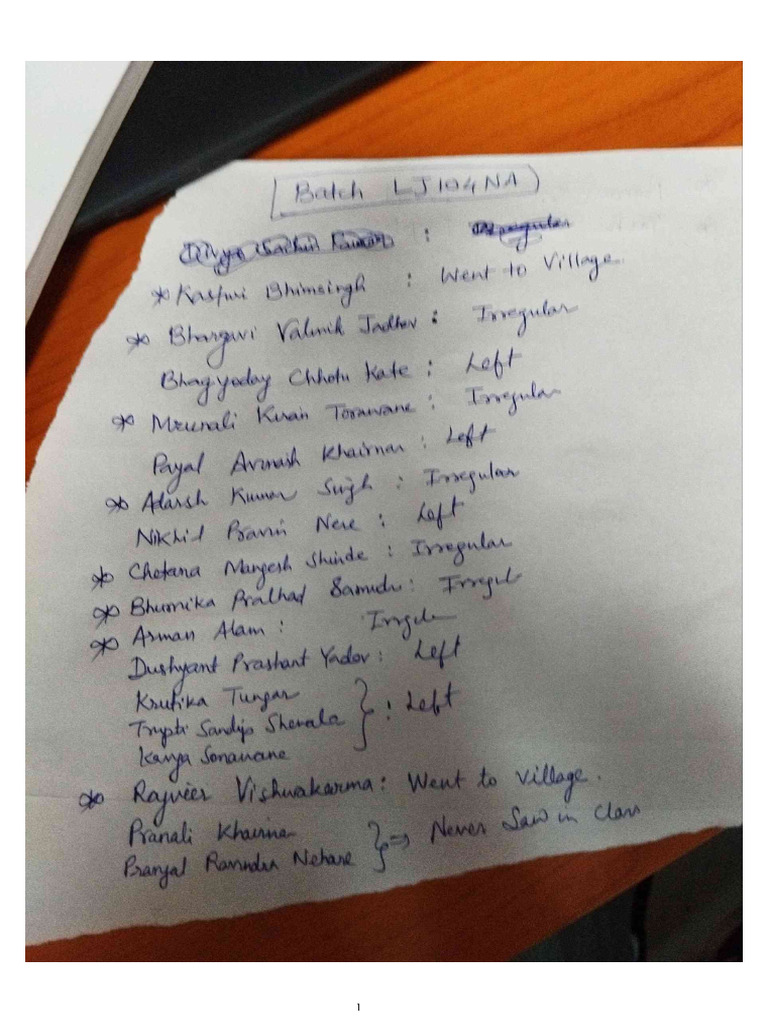 Batch LJ104NA
: 
* Kaspuri Bhimsingh : Went to Village.
* Bhargavi Valmik Jadhav : Irregular
Bhagyoday Chhotu Kate : Left
* Mrunali Kiran Torawane : Irregular
Payal Avinash Khairnar : Left
* Adarsh Kumar Singh : Irregular
Nikhil Pravin Nere : Left
* Chetana Mangesh Shinde : Irregular
* Bhumika Pralhad : Irregul
* Arman Alam :
Dushyant Prashant Yadav : Left
Krutika Tungar
Trupti Sandip } : Left
Kavya Sonawane
* Rajveer Vishwakarma : Went to village.
Pranali Khairna
Pranjal Nehare } => Never Saw in Class
1